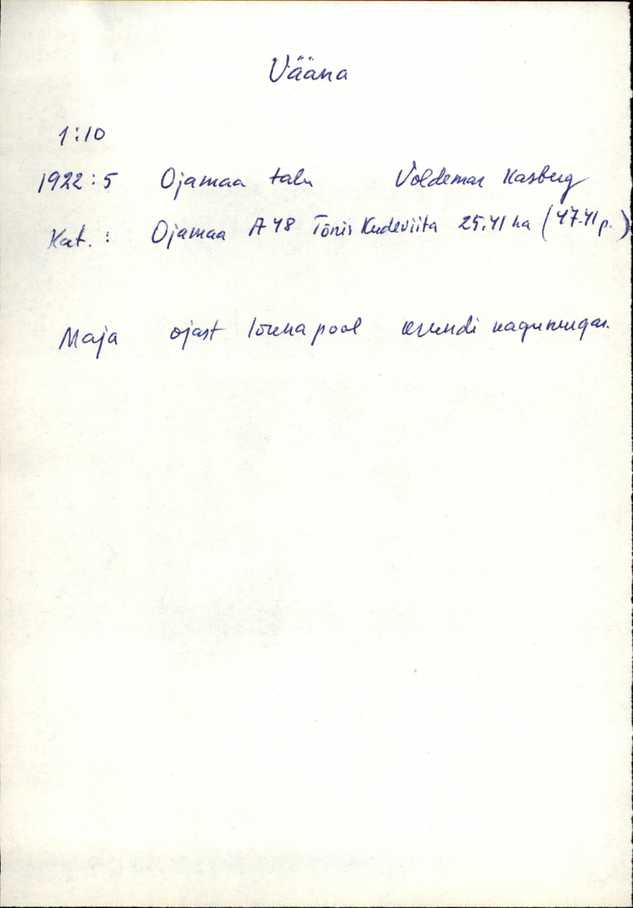 Vääna
1:10
1922:5 Ojamaa talu Voldemar Kasberg
Kat.: Ojamaa A48 Tõnis Kudeviita 25.41 ha (47.41 p.)
Maja ojast lõuna pool